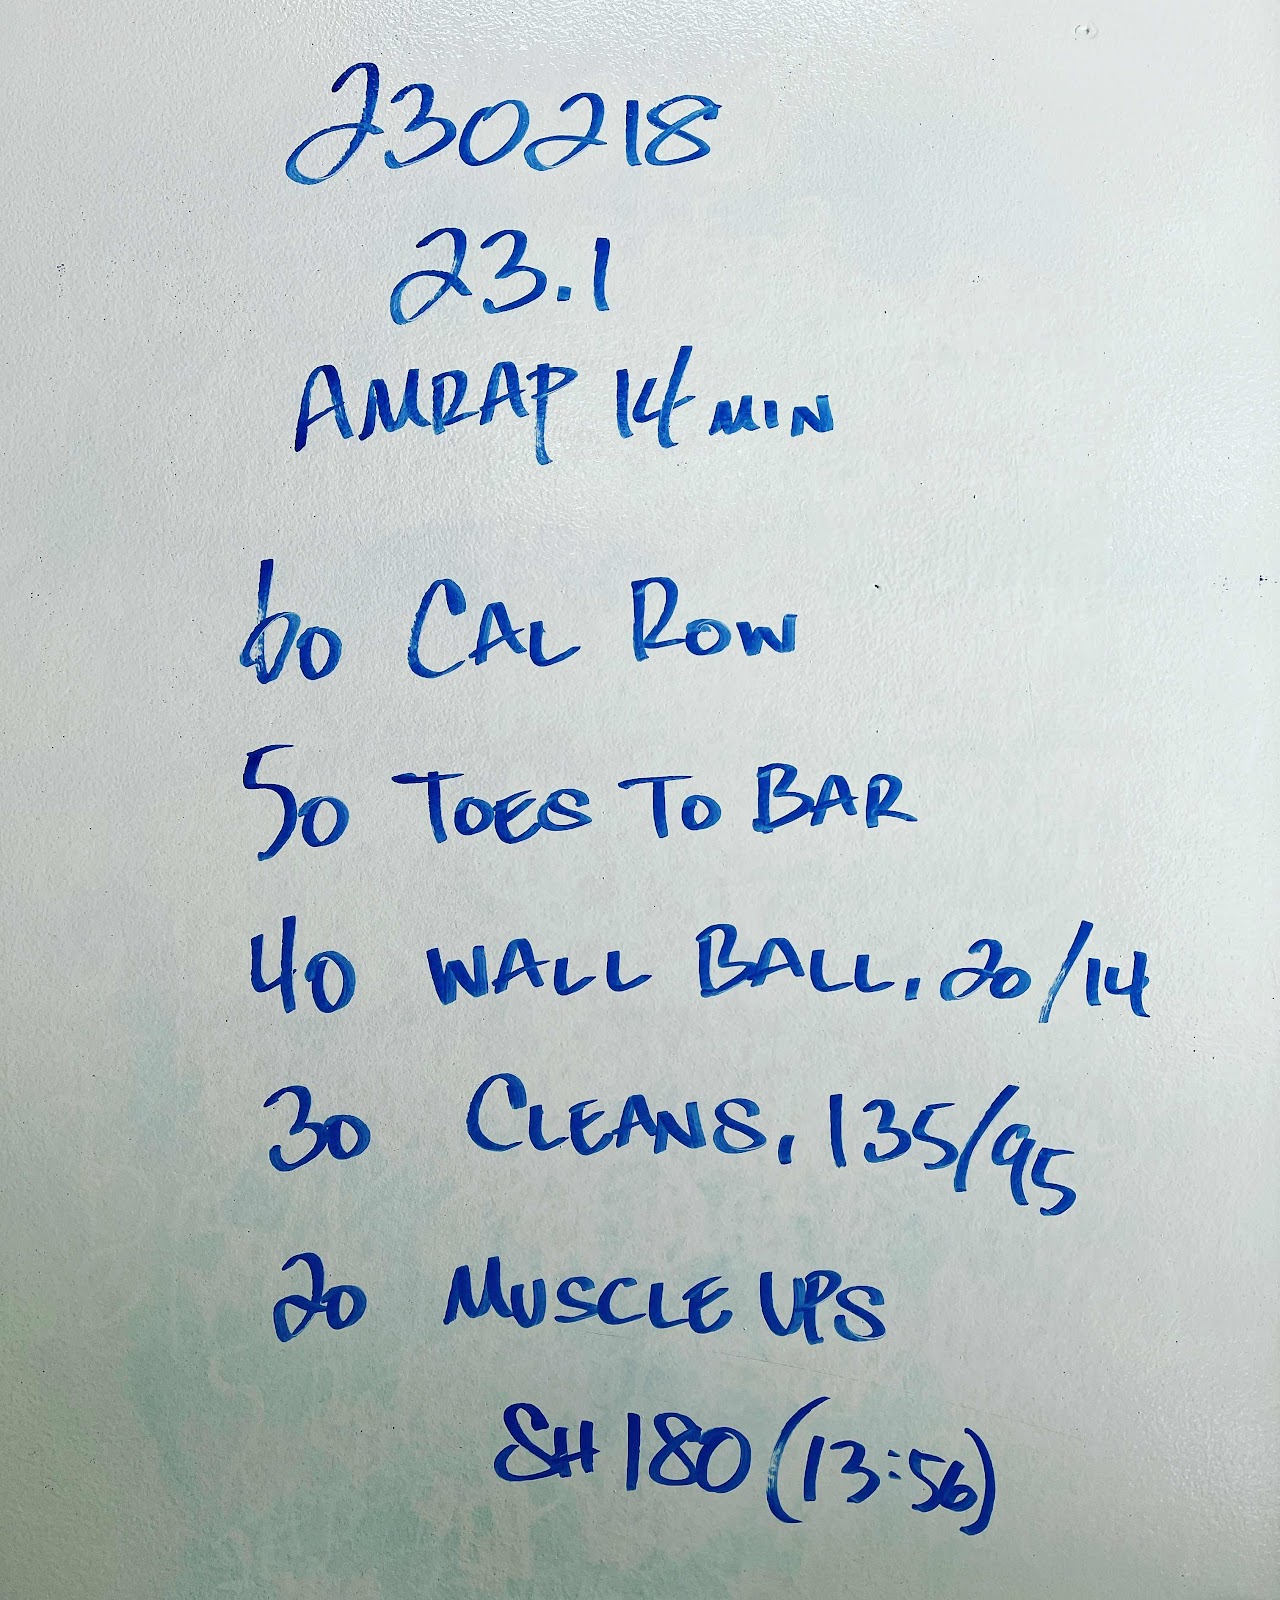 230218
23.1
AMRAP 14 MIN
60 CAL ROW
50 TOES TO BAR
40 WALL BALL, 20/14
30 CLEANS, 135/95
20 MUSCLE UPS
SH 180 (13:56)